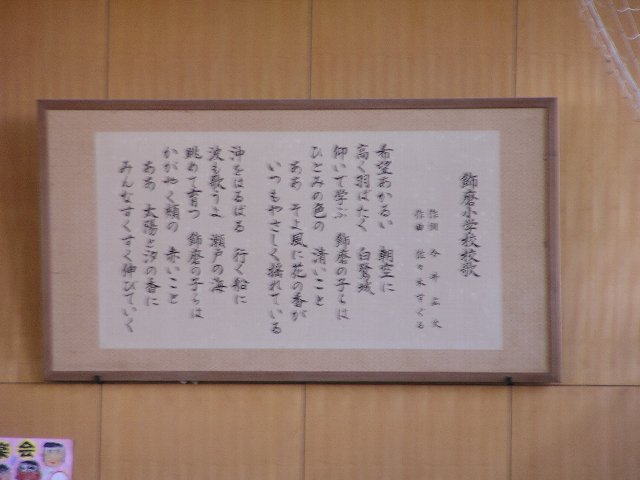 飾磨小学校校歌
作詞
作曲 佐々木すぐる
希望あかるい 朝空に
高く羽ばたく 白鷺城
仰いで学ぶ 飾磨の子らは
ひとみの色の 清いこと
ああ そよ風に花の香が
いつもやさしく揺れている
沖をはるばる 行く船に
波も歌うよ 瀬戸の海
眺めて育つ 飾磨の子らは
かがやく頬の 赤いこと
ああ 太陽と汐の香に
みんなすくすく伸びていく
楽会